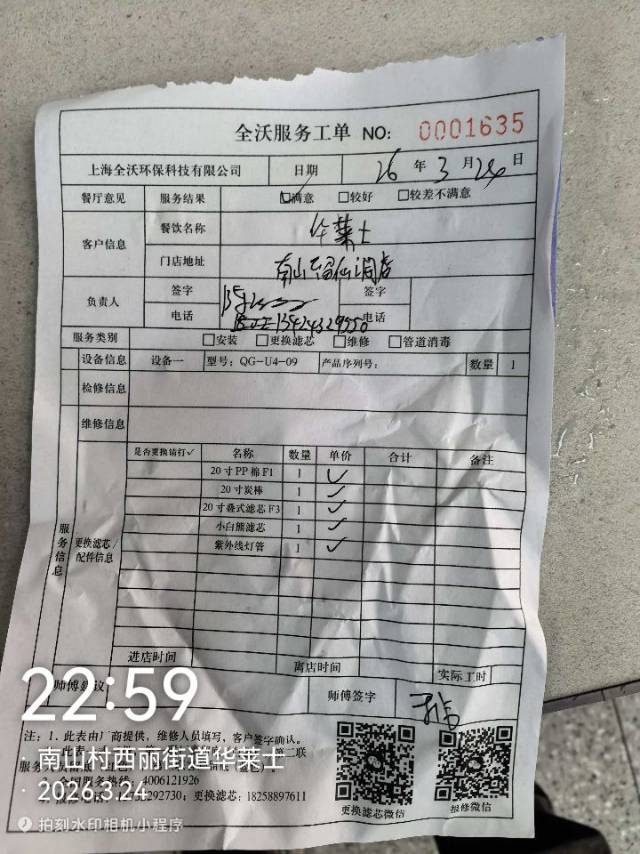 全沃服务工单 NO: 0001635
上海全沃环保科技有限公司 日期 26 年 3 月 24 日
餐厅意见 服务结果 满意 较好 较差不满意
客户信息 餐饮名称 华莱士
门店地址 南山 留仙洞店
负责人 签字 签字
电话 13424329550 电话
服务类别 安装 更换滤芯 维修 管道消毒
设备信息 设备一 型号: QG-U4-09 产品序列号: 数量 1
检修信息
维修信息
服务信息 更换滤芯/配件信息
是否更换请打✓ 名称 数量 单价 合计 备注
20寸PP棉F1 1 ✓
20寸炭棒 1 ✓
20寸叠式滤芯F3 1 ✓
小白熊滤芯 1 ✓
紫外线灯管 1 ✓
进店时间 离店时间 实际工时
师傅建议 师傅签字
注: 1. 此表由厂商提供, 维修人员填写, 客户签字确认。
第二联
服务人员
全国服务热线: 4006121926
292730; 更换滤芯: 18258897611
更换滤芯微信 报修微信
22:59
南山村西丽街道华莱士
2026.3.24
拍刻水印相机小程序